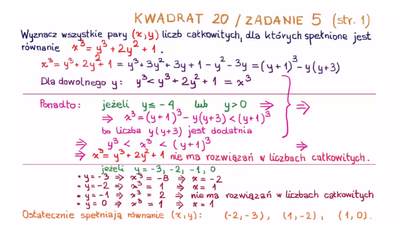 KWADRAT 20 / ZADANIE 5 (str. 1)
Wyznacz wszystkie pary (x,y) liczb całkowitych, dla których spełnione jest
równanie x³ = y³ + 2y² + 1.
x³ = y³ + 2y² + 1 = y³ + 3y² + 3y + 1 - y² - 3y = (y+1)³ - y(y+3)
Dla dowolnego y: y³ < y³ + 2y² + 1 = x³
Ponadto: jeżeli y ≤ -4 lub y > 0 ⇒ ⇒
⇒ x³ = (y+1)³ - y(y+3) < (y+1)³
bo liczba y(y+3) jest dodatnia
⇒ y³ < x³ < (y+1)³ ⇒
⇒ x³ = y³ + 2y² + 1 nie ma rozwiązań w liczbach całkowitych.
jeżeli y = -3, -2, -1, 0
• y = -3 ⇒ x³ = -8 ⇒ x = -2
• y = -2 ⇒ x³ = 1 ⇒ x = 1
• y = -1 ⇒ x³ = 2 ⇒ nie ma rozwiązań w liczbach całkowitych
• y = 0 ⇒ x³ = 1 ⇒ x = 1
Ostatecznie spełniają równanie (x,y): (-2,-3), (1,-2), (1,0).